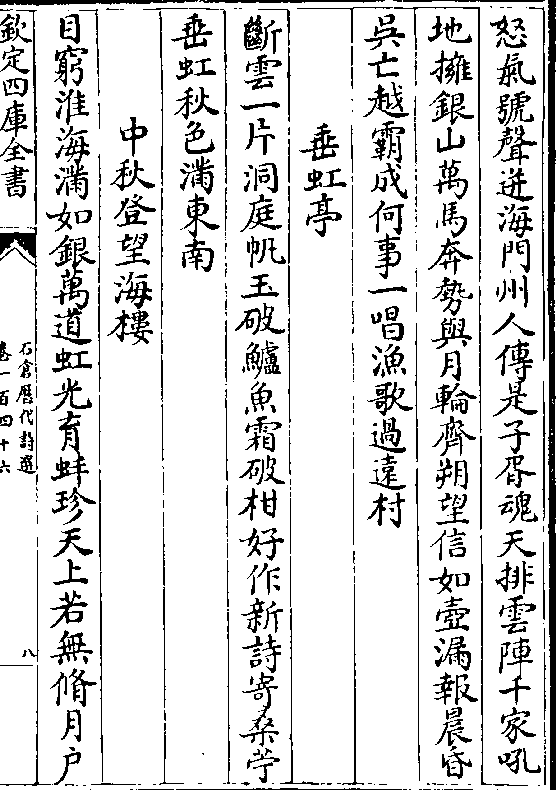 怒氣號聲迸海門州人傳是子胥魂天排雲陣千家吼
地擁銀山萬馬奔勢與月輪齊朔望信如壺漏報晨昏
吳亡越霸成何事一唱漁歌過遠村
垂虹亭
斷雲一片洞庭帆玉破鱸魚霜破柑好作新詩寄桑苧
垂虹秋色滿東南
中秋登望海樓
目窮淮海滿如銀萬道虹光育蚌珍天上若無脩月户
欽定四庫全書
石倉歷代詩選
卷一百四十六
八